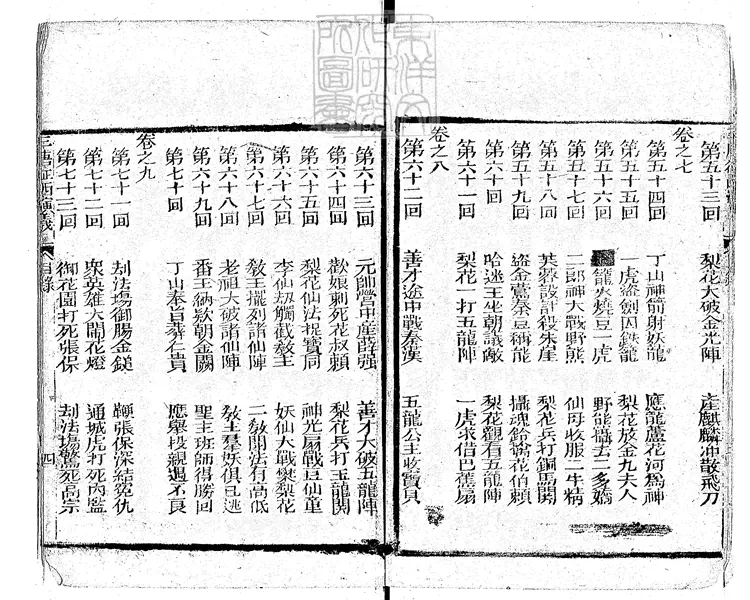 第五十三回 梨花大破金光陣 產麒麟冲散飛刀
卷之七
第五十四回 丁山神箭射妖龍 應龍蘆花河為神
第五十五回 一虎盜劍囚鉄籠 梨花放金九夫人
第五十六回 籠火燒豆一虎 野熊攝去二多嬌
第五十七回 二郎神大戰野熊 仙母收服二牛精
第五十八回 芙蓉設計殺朱崖 梨花兵打銅馬關
第五十九回 盜金鶯秦豆稱能 攝魂鈴搖花伯賴
第六十回 哈迷王坐朝議敵 梨花觀看五龍陣
第六十一回 梨花一打五龍陣 一虎求借巴蕉扇
卷之八
第六十二回 善才途中戰秦漢 五龍公主收寶貝
第六十三回 元帥營中產薛強 善才大破五龍陣
第六十四回 歡娘刺死花叔賴 梨花兵打玉龍關
第六十五回 梨花仙法捉寶同 神光扇戰豆仙童
第六十六回 李仙刼觸截教主 妖仙大戰樊梨花
第六十七回 教主擺列諸仙陣 二教開法有高低
第六十八回 老祖大破諸仙陣 教主羣妖俱已逃
第六十九回 番王納欵朝金闕 聖主班師得勝回
第七十回 丁山奉旨葬仁貴 應舉投親遇不良
卷之九
第七十一回 刼法塲御賜金鎚 鞭張保深結寃仇
第七十二回 衆英雄大鬧花燈 通城虎打死內監
第七十三回 御花園打死張保 刼法塲驚死高宗
三唐征西演義 目錄 四